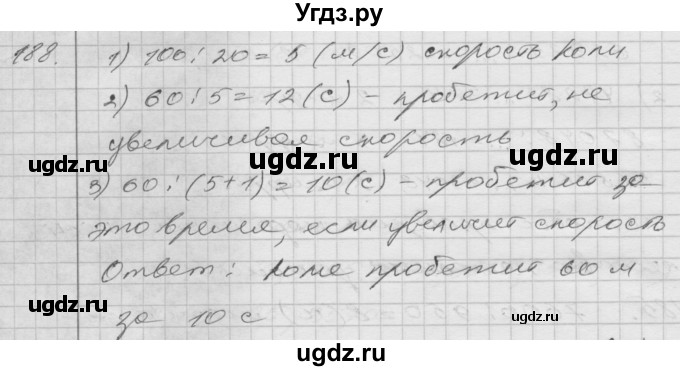 Угдз.ру
188. 1) 100 : 20 = 5 (м/с) скорость Коли
2) 60 : 5 = 12 (с) – пробежит, не
увеличивая скорость
3) 60 : (5+1) = 10 (с) – пробежит за
это время, если увеличит скорость
Ответ: Коле пробежит 60 м
за 10 с
ugdz.ru
ugdz.ru
ugdz.ru
ugdz.ru
ugdz.ru
ugdz.ru
ugdz.ru
ugdz.ru
ugdz.ru